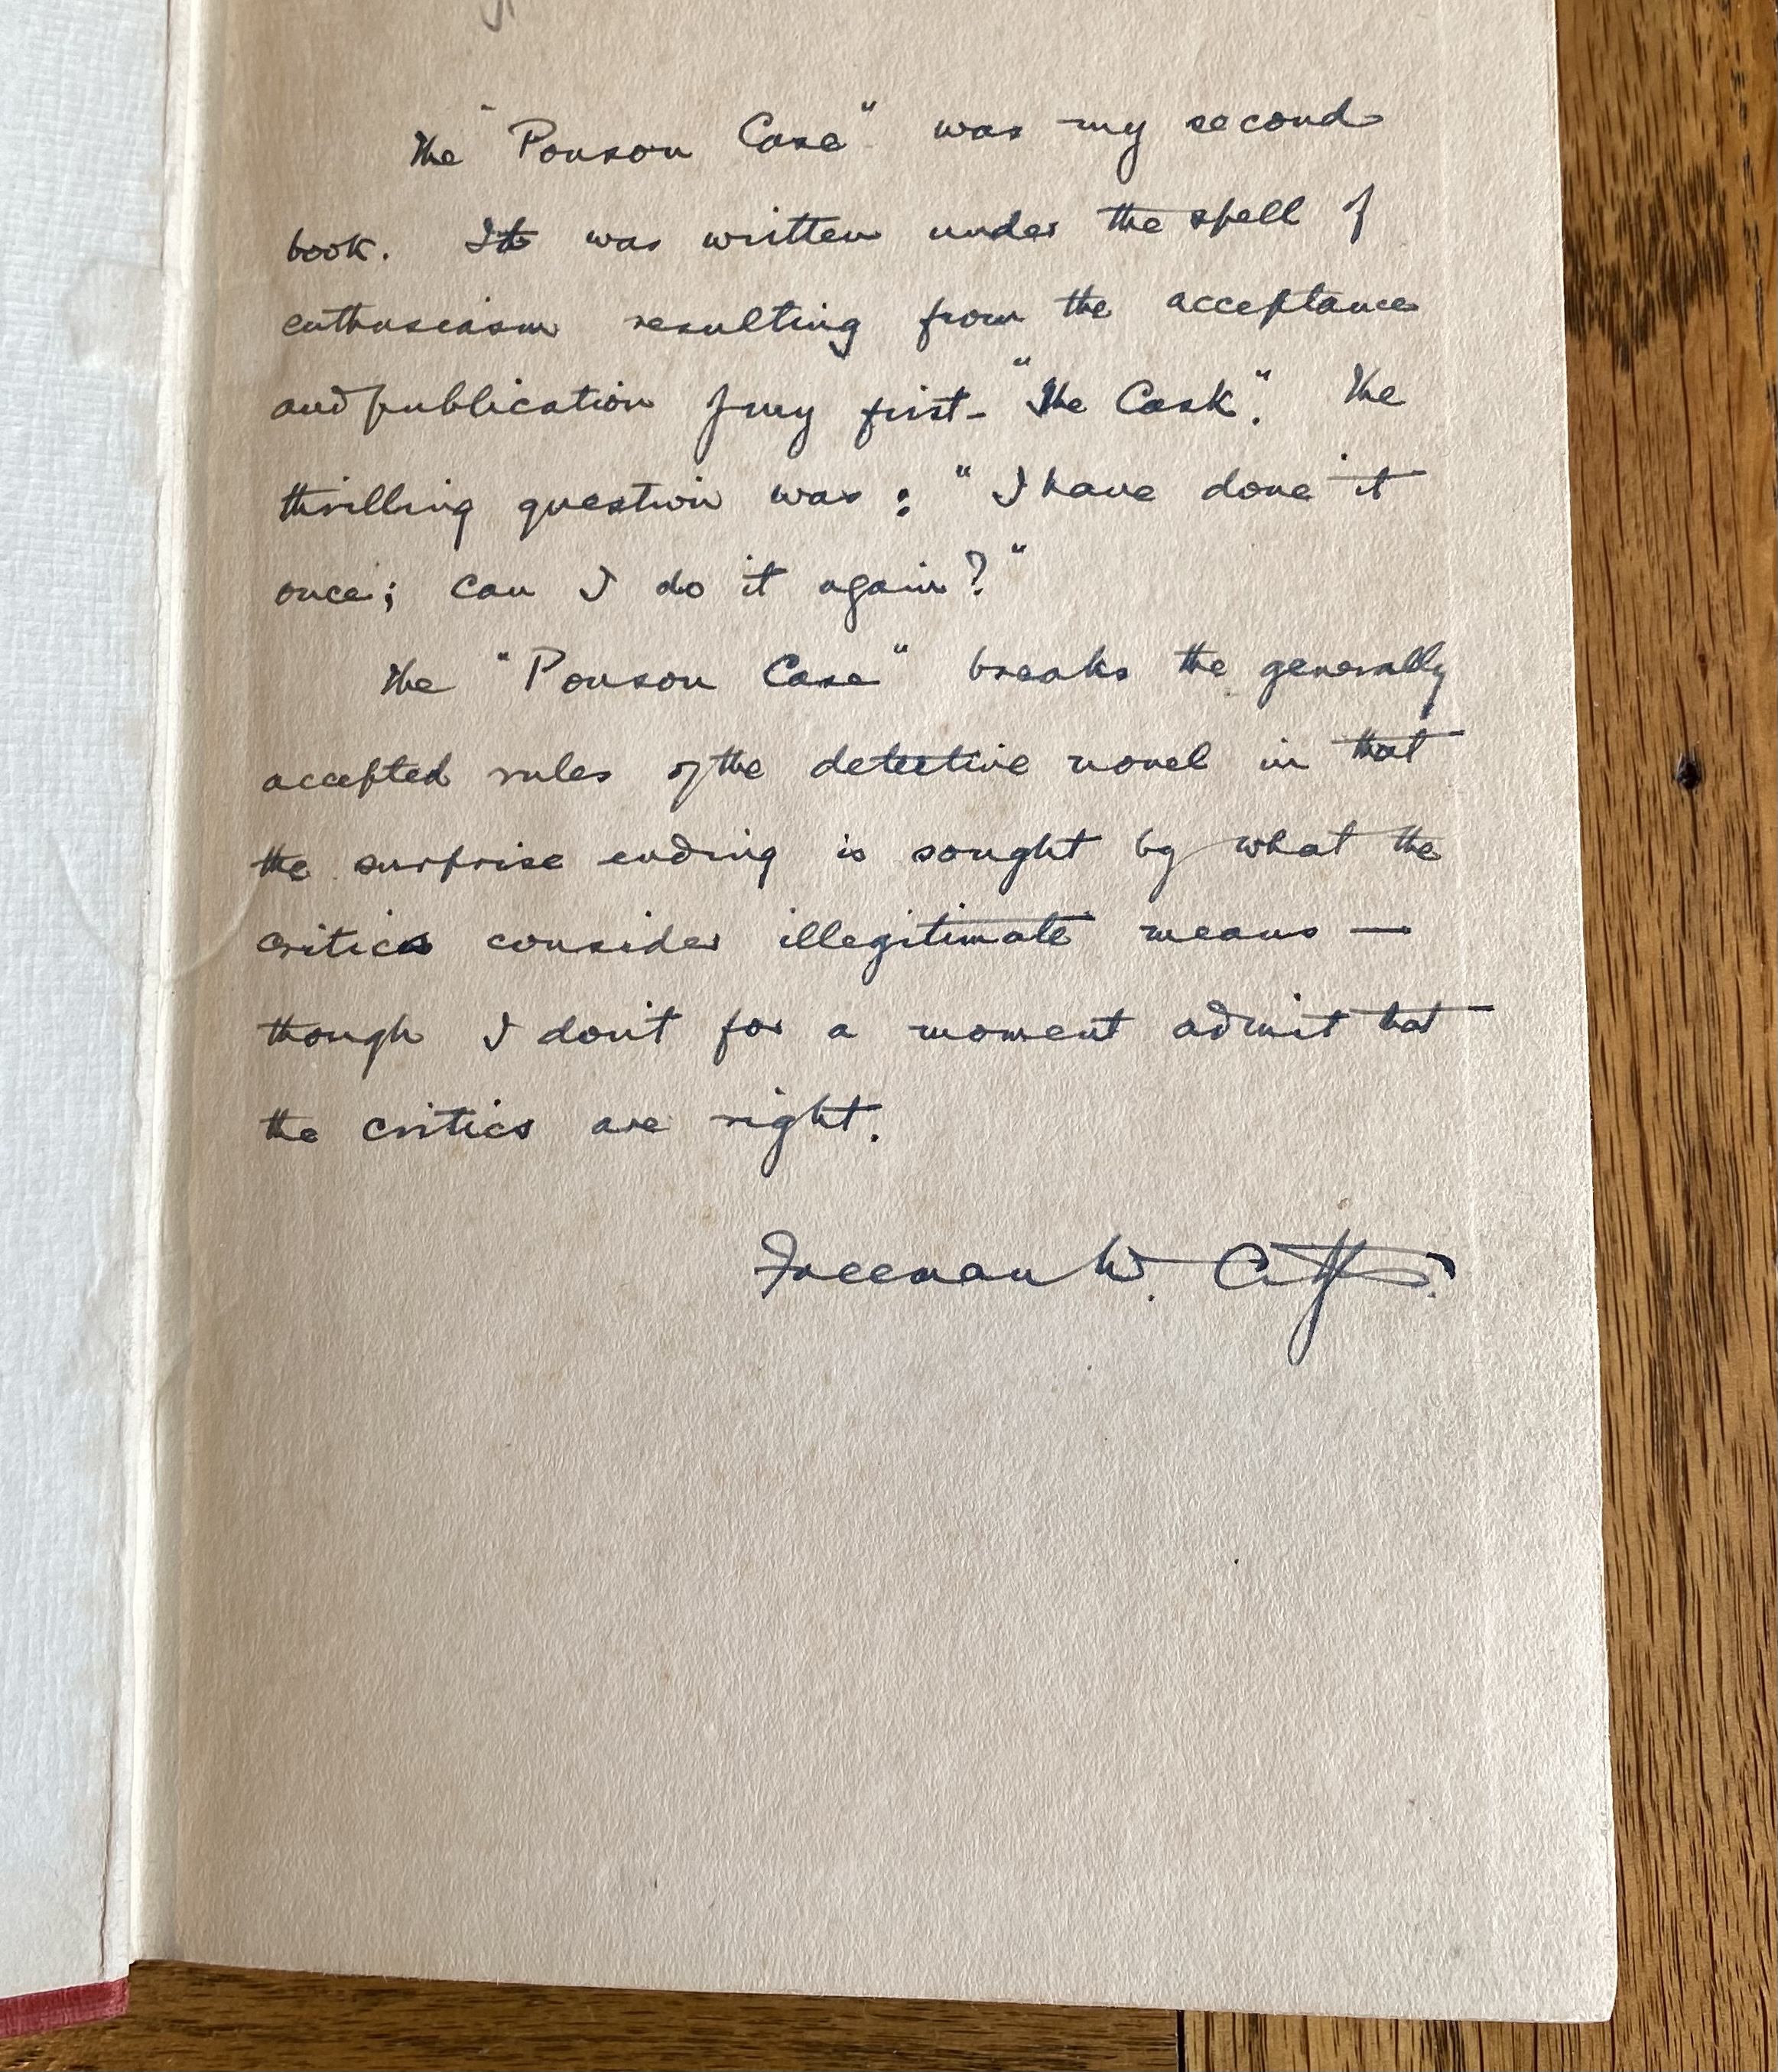 The "Ponson Case" was my second
book. It was written under the spell of
enthusiasm resulting from the acceptance
and publication of my first - "The Cask". The
thrilling question was: "I have done it
once; can I do it again?"
The "Ponson Case" breaks the generally
accepted rules of the detective novel in that
the surprise ending is sought by what the
critics consider illegitimate means —
though I don't for a moment admit that
the critics are right.
Freeman W. Crofts.